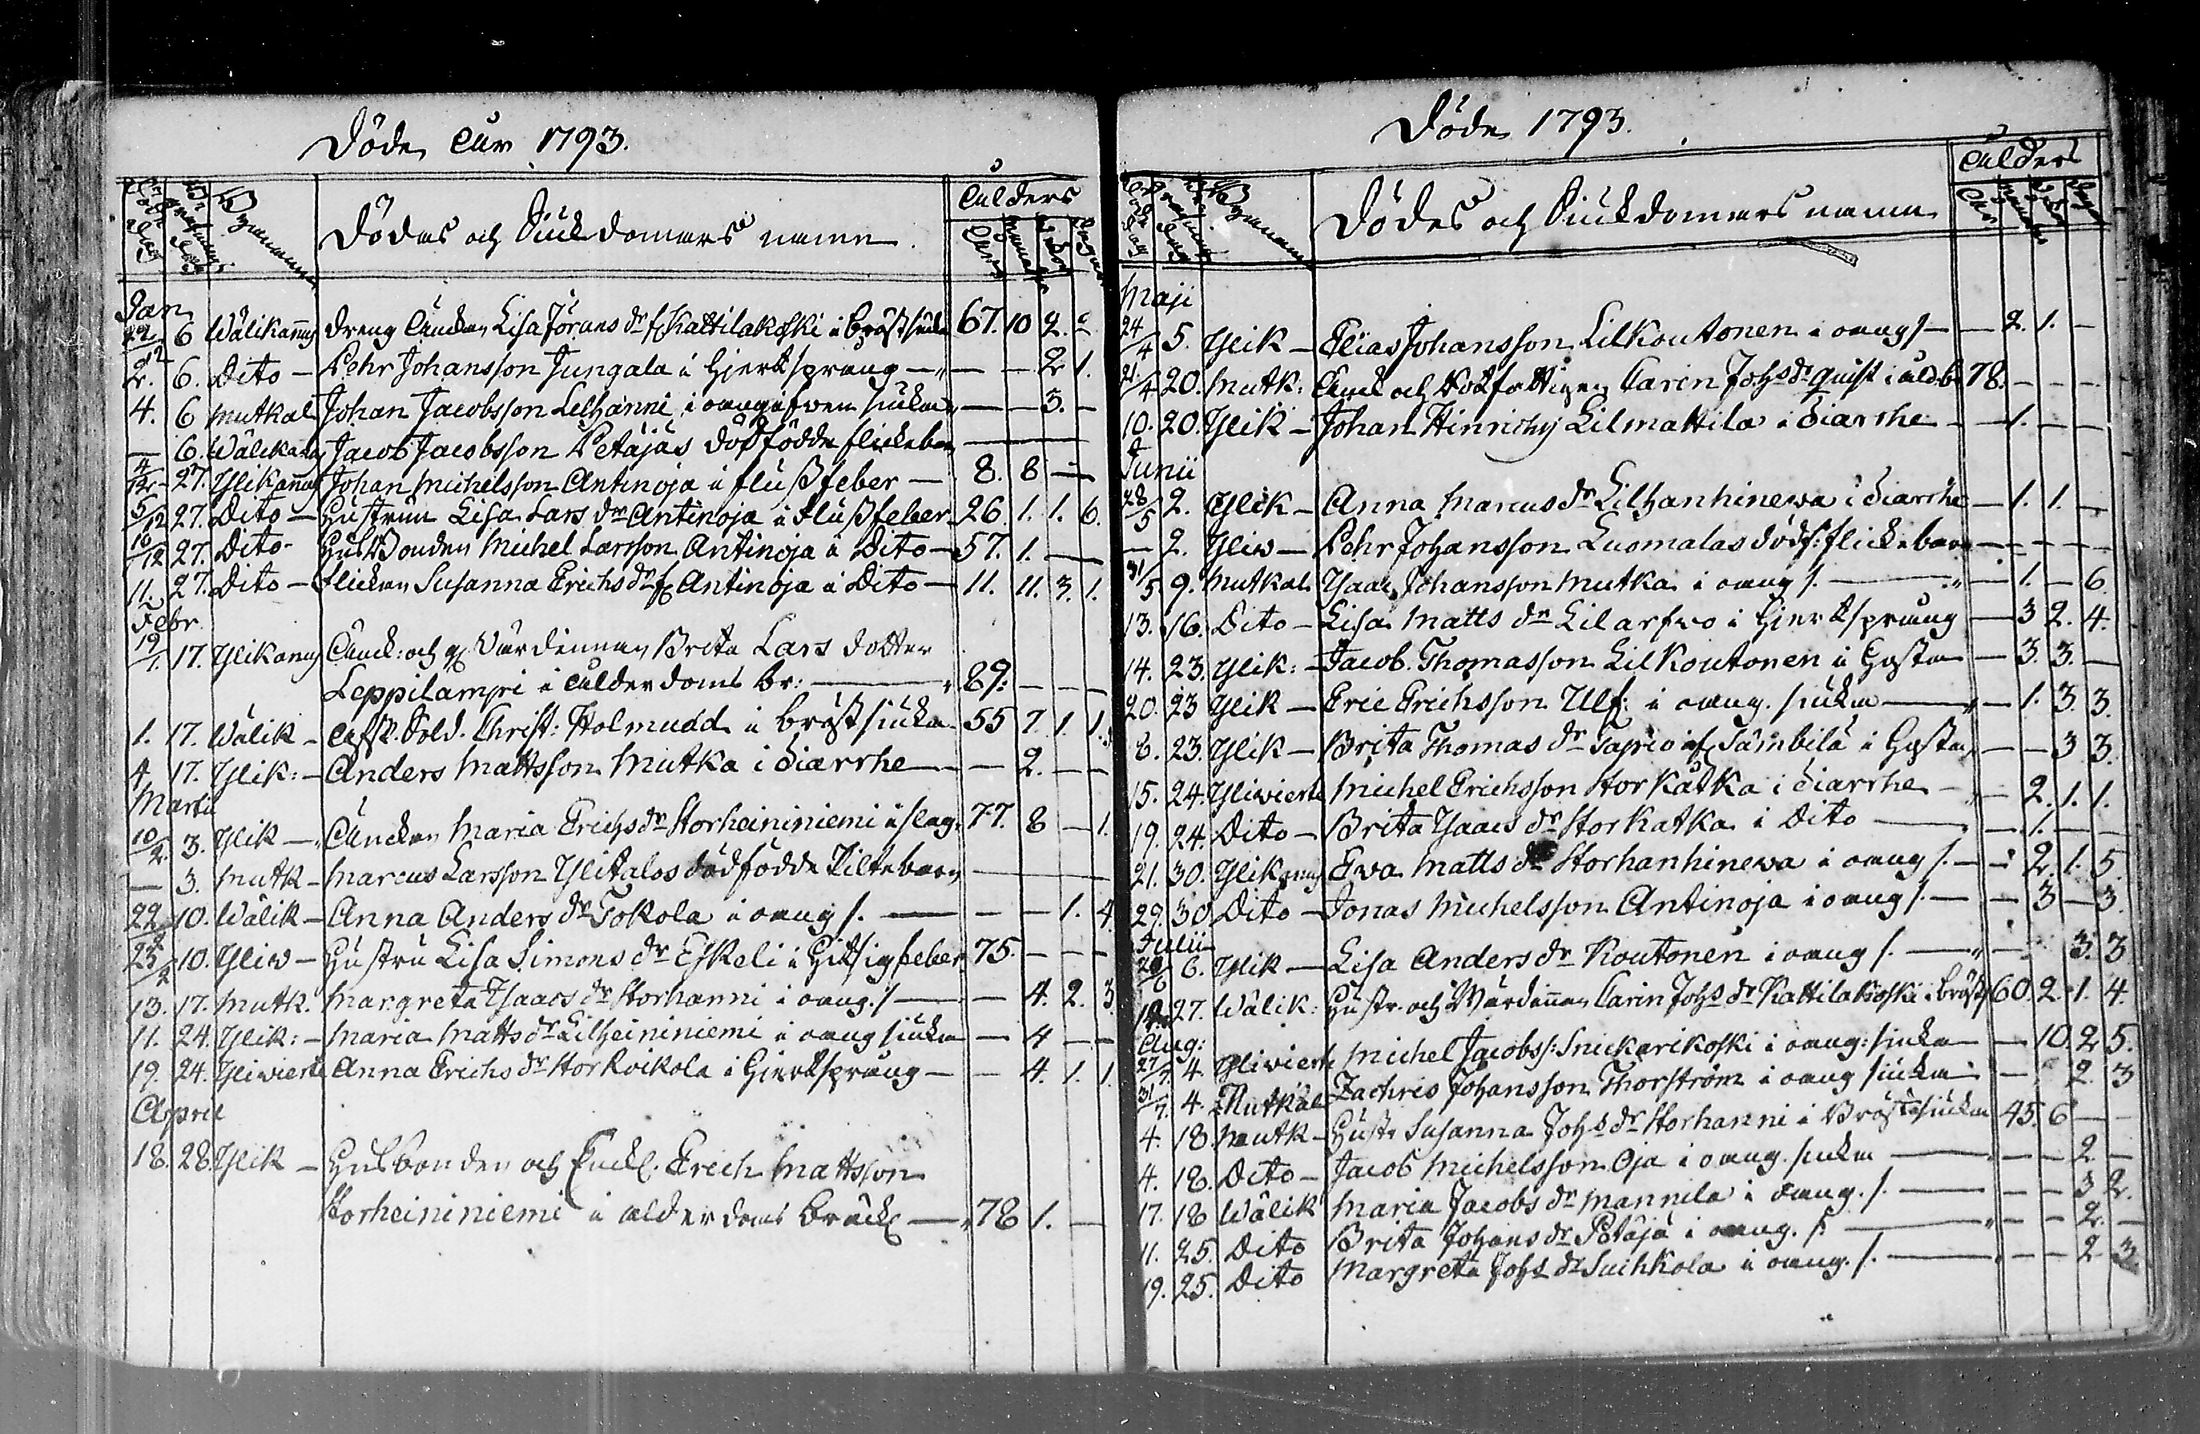 Döde Åhr 1793.
Ålders
Döda dag Begrafnings dag Bynamn Dödas och Siukdomars namn Åhr Månader Wekor Dagar
Jan
22/12 6 Wälikannus Dreng Änckan Lisa Jörans dr f. Kattilakoski i bröstsiuka 67. 10 2.
2. 6. Dito - Pehr Johansson Jungala i Hjertsprång - - - 2 1.
4. 6 Mutkal Johan Jacobsson Lilhanni i siukan - - 3. -
- 6. Wälikan Jacob Jacobsson Petäjäs dödfödde flickebarn
4/12 - 27. Ylikannus Johan Michelsson Antinoja i flussfeber - 8. 8 -
5/12 27. Dito - Hustrun Lisa Lars dr Antinoja i flussfeber 26. 1. 1. 6.
10/12 27. Dito - Husbonden Michel Larsson Antinoja i Dito - 57. 1. -
11. 27. Dito - Flickan Susanna Erichs dr f Antinoja i Dito - 11. 11. 3. 1.
Febr.
19/1. 17. Ylikannus Änck: och Wärdinnan Brita Lars dotter
Leppilampi i Ålderdoms br: - 89: - - -
1. 17. Wälik - Afsk. Sold. Christ: Holmudd i bröstsiuka 55 7. 1. 1.
4. 17. Ylik: - Anders Mattsson Mutka i diarrhe - - 2. - -
Martii
10/2. 3. Ylik - Änckan Maria Erichs dr Storheininiemi i slag. 77. 8 - 1.
- 3. Mutk - Marcus Larsson Ylitalos dödfödde Piltebarn
22/2 10. Wälik - Anna Anders dr Tokola i oang s. - - - 1. 4.
23/2 10. Yliw - Hustru Lisa Simons dr Eskeli i Hitsigfeber 75. - - -
13. 17. Mutk. Margreta Isaacs dr Storhanni i oang. s - - 4. 2. 3
11. 24. Ylik: - Maria Matts dr Lilheininiemi i oang siukan - 4 - -
19. 24. Yliwierk Anna Erichs dr Storkoikola i Hjertsprång - - 4. 1. 1.
April
18. 28. Ylik - Husbonden och Enckl. Erich Mattsson
Storheininiemi i ålderdoms bräckl - 78 1. -
Döde 1793.
Ålders
Döda dag Begrafnings dag Bynamn Dödas och Siukdomars namn Åhr Månader Wekor Dagar
Maji
24/4 5. Ylik - Elias Johansson Lilkoutonen i oang s - - 2. 1. -
21/4 20. Mutk: Änck och Rotfattigen Carin Johs dr Quist i åld.b 78. - - -
10. 20. Ylik - Johan Hinrichs Lilmattila i diarrhe - - 1. - -
Junii
28/5 2. Ylik - Anna Marcus dr Lilhanhinewa i diarrhe - 1. 1. -
- 2. Yliw - Pehr Johansson Luomalas dödf: flickebarn - - - -
31/5 9. Mutkal. Isaac Johansson Mutka i oang s. - - 1. - 6.
13. 16. Dito - Lisa Matts dr Lilarfwo i Hjertsprång - 3 2. 4.
14. 23. Ylik: - Jacob Thomasson Lilkoutonen i Hosta - 3. 3. -
20. 23 Ylik - Eric Erichsson Ulf: i oang. siukan - - 1. 3. 3.
8. 23. Ylik - Brita Thomas dr Taprio af Sämbilä i Hosta - - 3 3.
15. 24. Yliwierk Michel Erichsson Storkatka i diarrhe - - 2. 1. 1.
19. 24. Dito - Brita Isaacs dr Storkatka i Dito - - 1. - -
21. 30. Ylikannus Ewa Matts dr Storhanhinewa i oang s. - - 2. 1. 5.
29. 30. Dito - Jonas Michelsson Antinoja i oang s. - - 3 - 3.
Julii
28/6 6. Ylik - Lisa Anders dr Koutonen i oang s. - - - 3. 3
27. Wälik: Hustr. och Wärdinnan Carin Johs dr Kattilakoski i bröst 60. 2. 1. 4.
Aug:
27/7. 4. Yliwierk Michel Jacobss: Snickarikoski i oang: siukan - 10. 2 5.
31/7. 4. Mutkal Zachris Johansson Thorström i oang siukan - 2. 3
4. 18. Mutk - Hustr Susanna Johs dr Storhanni i Bröstsiukan 45. 6 - -
4. 18. Dito - Jacob Michelsson Oja i oang. siukan - - - 2. -
17. 18 Wälik Maria Jacobs dr Mannila i oang. s. - - - 3 2.
11. 25. Dito Brita Johans dr Petäjä i oang. s. - - - 2. -
19. 25. Dito Margreta Johs dr Suihkola i oang. s. - - - 2 3.